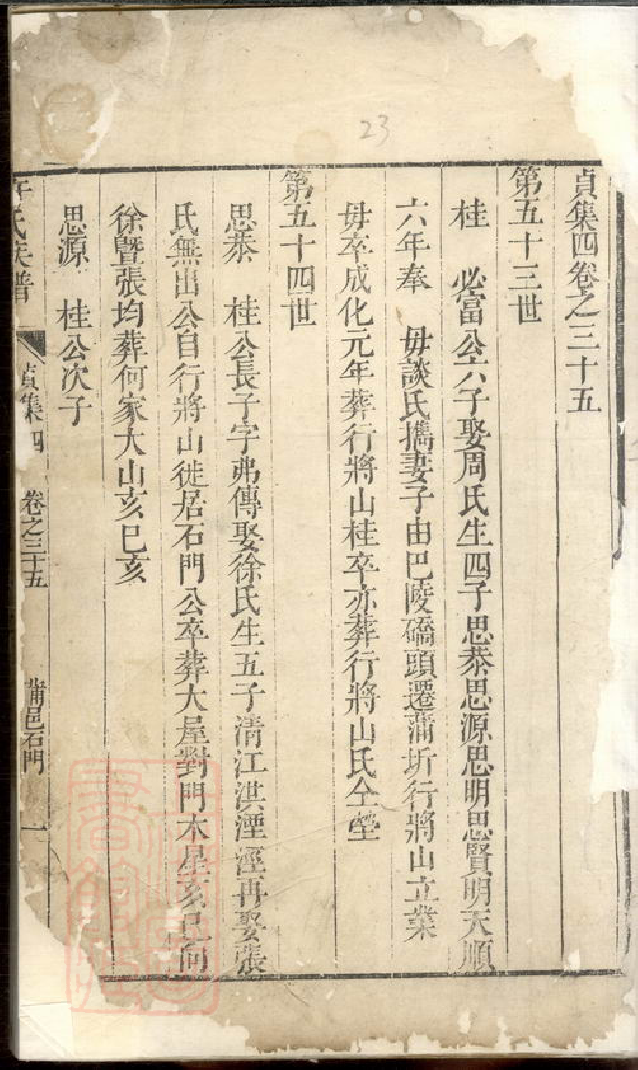 23
貞集四卷之三十五
第五十三世
桂　必富公六子娶周氏生四子思恭思源思明思賢明天順
六年奉　毋談氏携妻子由巴陵磆頭遷蒲圻行將山立業
毋卒成化元年葬行將山桂卒亦葬行將山氏仝塋
第五十四世
思恭　桂公長子字弗傳娶徐氏生五子清江淇湮涇再娶張
氏無出公自行將山徙居石門公卒葬大屋對門木星亥巳向
徐暨張均葬何家大山亥巳亥
思源　桂公次子
氏族譜　貞集四　卷之三十五　蒲邑石門　一